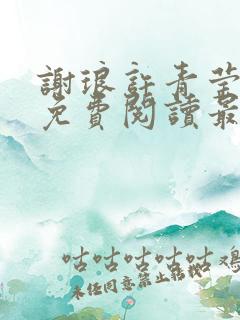 謝琅許青莹
免費閱讀最
咕咕咕咕咕鸡
未经同意禁止转载